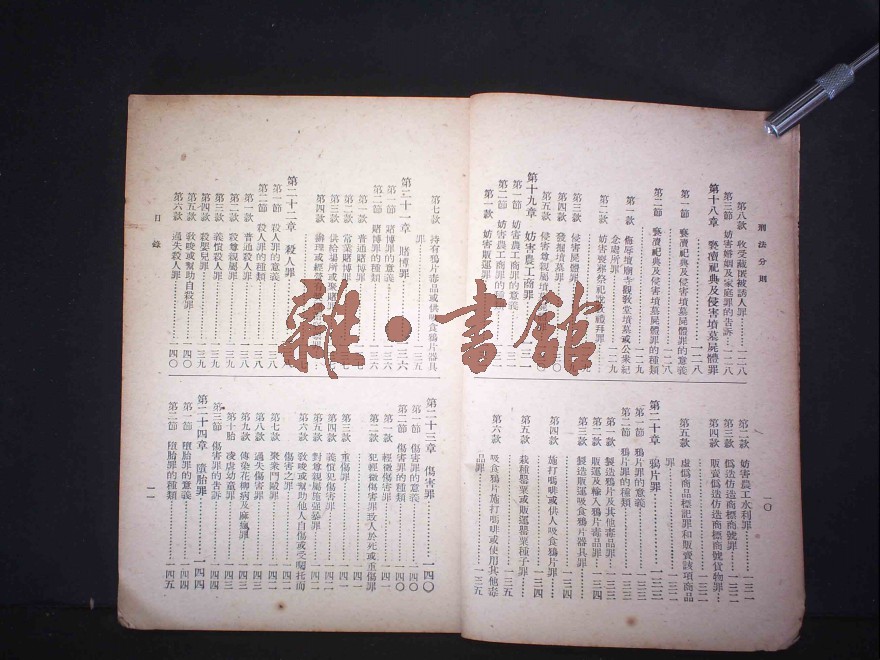 刑法分則
一〇
第八款 收受藏匿被誘人罪……一二八
第三節 妨害婚姻及家庭罪的告訴……一二八
第十八章 褻瀆祀典及侵害墳墓屍體罪
……一二八
第一節 褻瀆祀典及侵害墳墓屍體罪的意義
……一二八
第二節 褻瀆祀典及侵害墳墓屍體罪的種類
……一二九
第一款 侮辱壇廟寺觀教堂墳墓或公衆紀
念處所罪……一二九
第二款 妨害喪葬祭祀說教禮拜罪
第三款 侵害屍體罪
第四款 發掘墳墓罪
第五款 侵害尊親屬墳墓
第十九章 妨害農工商罪
第一節 妨害農工商罪的意義
第二節 妨害農工商罪的種
第一款 妨害販運罪
第二款 妨害農工水利罪……一三一
第三款 偽造仿造商標商號罪……一三二
第四款 販賣偽造仿造商標商號貨物罪……一三二
第五款 虛偽商品標記罪和販賣該項商品
罪
第二十章 鴉片罪
第一節 鴉片罪的意義
第二節 鴉片罪的種類
第一款 製造鴉片及其他毒品罪
第二款 販運及輸入鴉片毒品罪
第三款 製造販運吸食鴉片器具罪
第四款 施打嗎啡或供人吸食鴉片罪
……一三四
第五款 栽種罌粟或販運罌粟種子罪
……一三五
第六款 吸食鴉片施打嗎啡或使用其他毒
品罪……一三五
第七款 持有鴉片毒品或供吸食鴉片器具
罪……一三五
第二十一章 賭博罪……一三六
第一節 賭博罪的意義……一三六
第二節 賭博罪的種類
第一款 普通賭博罪
第二款 常業賭博罪
第三款 供給場所或聚賭
第四款 辦理或經營
第二十二章 殺人罪
第一節 殺人罪的意義……一三八
第二節 殺人罪的種類……一三八
第一款 普通殺人罪……一三八
第二款 殺尊親屬罪……一三九
第三款 義憤殺人罪……一三九
第四款 殺嬰兒罪……一三九
第五款 教唆或幫助自殺罪……一四〇
第六款 過失殺人罪……一四〇
第二十三章 傷害罪……一四〇
第一節 傷害罪的意義……一四〇
第二節 傷害罪的種類……一四〇
第一款 輕微傷害罪……一四一
第二款 犯輕微傷害罪致人於死或重傷罪
……一四一
第三款 重傷罪……一四一
第四款 義憤犯傷害罪……一四二
第五款 對尊親屬施強暴罪……一四二
第六款 教唆或幫助他人自傷或受囑托而
傷害之罪……一四二
第七款 聚衆鬥毆罪……一四二
第八款 過失傷害罪……一四三
第九款 傳染花柳病及麻瘋罪……一四三
第十款 凌虐幼童罪……一四三
第三節 傷害罪的告訴……一四四
第二十四章 墮胎罪……一四四
第一節 墮胎罪的意義……一四四
第二節 墮胎罪的種類……一四五
目錄
一一
雜·書館